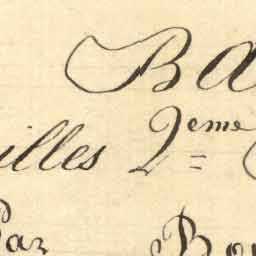 Ba
illes 2eme
Par Bou